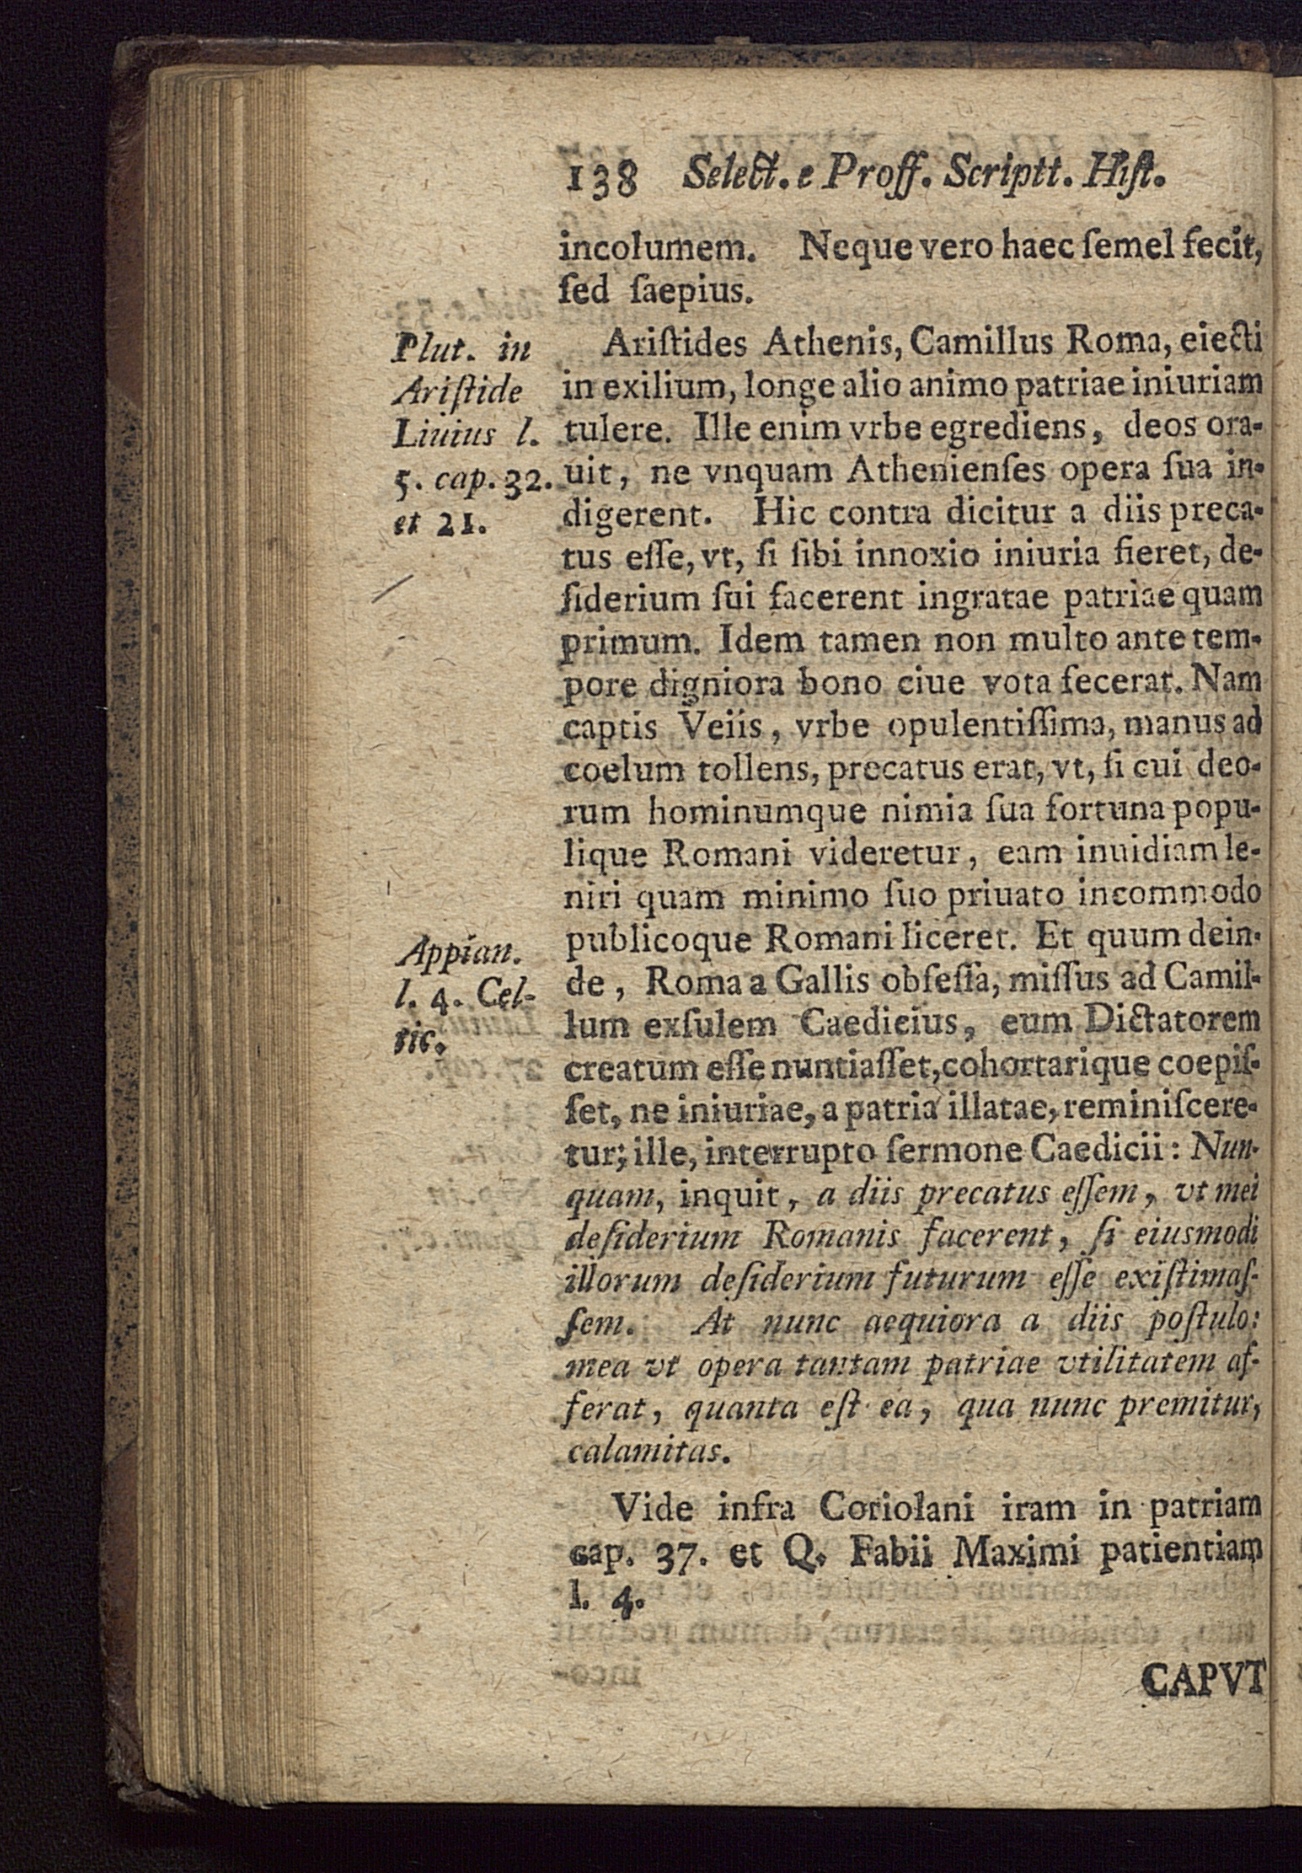 138 Select. e Proff. Scriptt. Hist.
incolumem. Neque vero haec ſemel fecit,
ſed ſaepius.
Plut. in
Ariſtide
Liuius l.
5. cap. 32.
et 21.
Ariſtides Athenis, Camillus Roma, eiecti
in exilium, longe alio animo patriae iniuriam
tulere. Ille enim vrbe egrediens, deos ora-
uit, ne vnquam Athenienſes opera ſua in-
digerent. Hic contra dicitur a diis preca-
tus eſſe, vt, ſi ſibi innoxio iniuria fieret, de-
ſiderium ſui facerent ingratae patriae quam
primum. Idem tamen non multo ante tem-
pore digniora bono ciue vota fecerat. Nam
captis Veiis, vrbe opulentiſſima, manus ad
coelum tollens, precatus erat, vt, ſi cui deo-
rum hominumque nimia ſua fortuna popu-
lique Romani videretur, eam inuidiam le-
niri quam minimo ſuo priuato incommodo
publicoque Romani liceret. Et quum dein-
Appian.
l. 4. Cel-
tic.
de, Roma a Gallis obſeſſa, miſſus ad Camil-
lum exſulem Caedicius, eum Dictatorem
creatum eſſe nuntiaſſet, cohortarique coepiſ-
ſet, ne iniuriae, a patria illatae, reminiſcere-
tur; ille, interrupto ſermone Caedicii: Nun-
quam, inquit, a diis precatus eſſem, vt mei
deſiderium Romanis facerent, ſi eiusmodi
illorum deſiderium futurum eſſe exiſtimaſ-
ſem. At nunc aequiora a diis poſtulo:
mea vt opera tantam patriae vtilitatem af-
ferat, quanta eſt ea, qua nunc premitur,
calamitas.
Vide infra Coriolani iram in patriam
cap. 37. et Q. Fabii Maximi patientiam
l. 4.
CAPVT